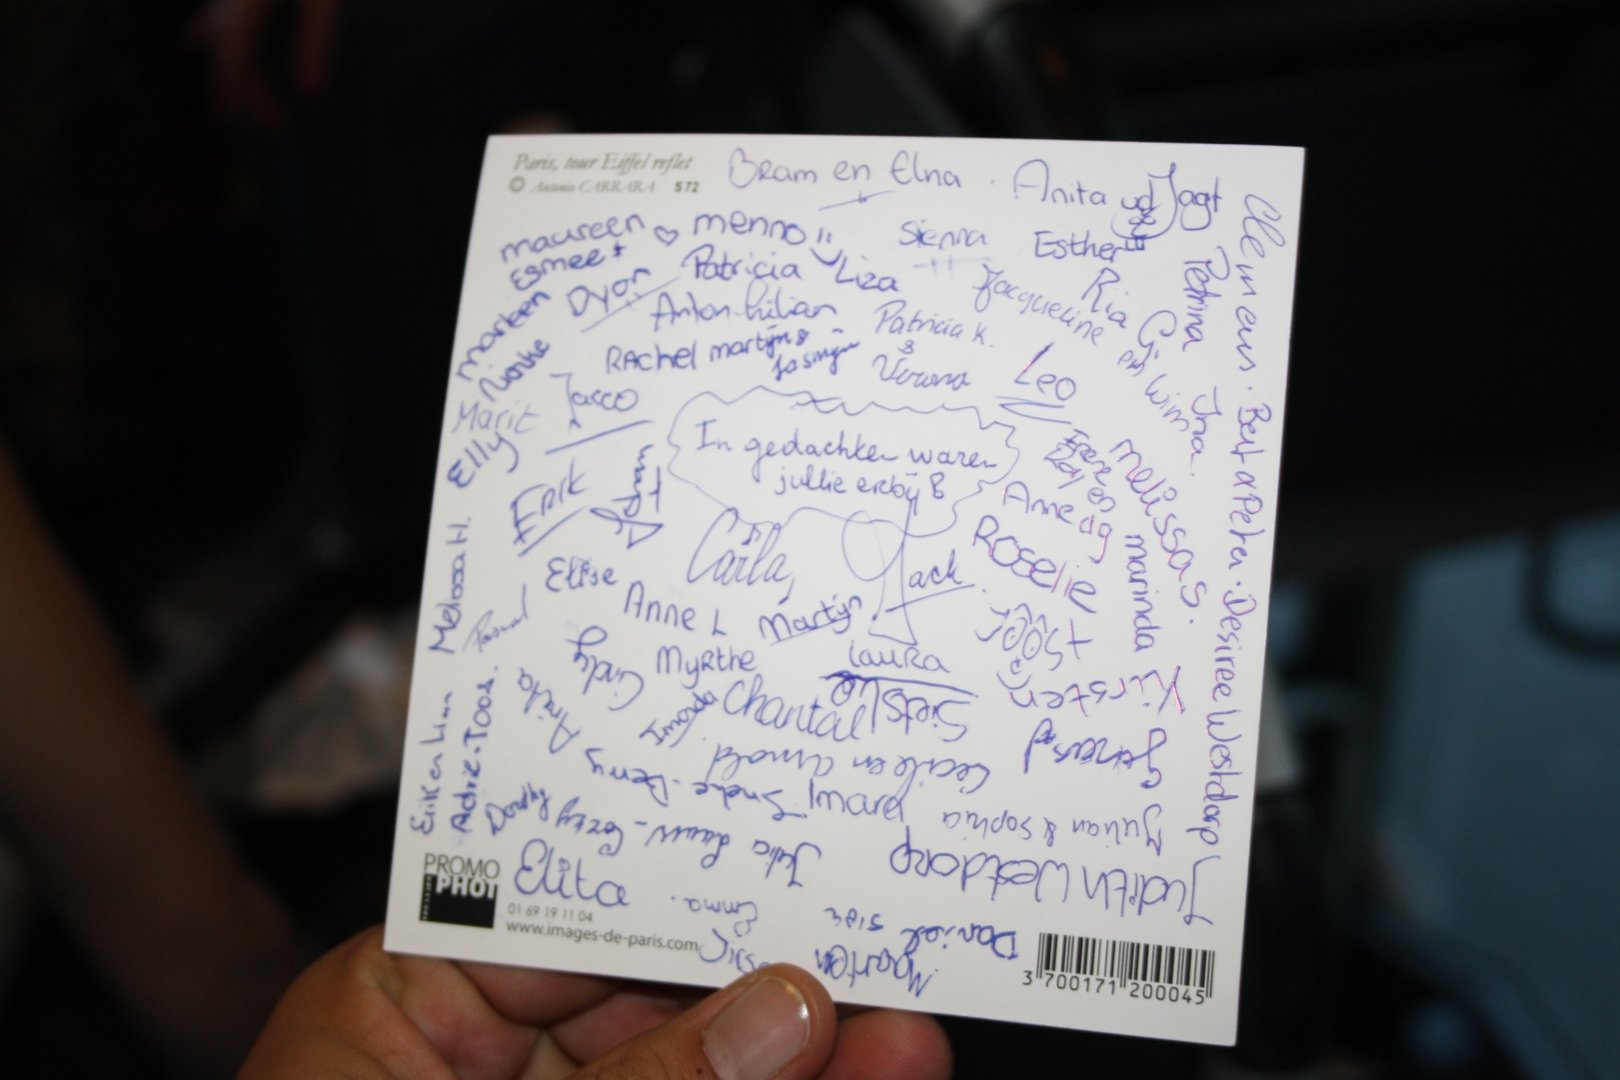 Paris, tour Eiffel reflet
© Antonio CARRARA S 72
Bram en Elna
Anita
Jagt
Clemens. Bert & Peter. Desiree Westdorp
maureen ♡ menno
Sienna
Esther
Petrina
Esmee
Dyon
Patricia
Liza
Jacqueline
Ria
Marleen
Anton
Patricia K.
&
Verona
Wim
Ina.
Nienke
RAchel
martijn &
Leo
Marit
Jacco
Elly
In gedachten waren
jullie erbij
Irene
Melissa S.
Erik
Anne
Roselie
marinda
Carla,
Jack
Elise
Melissa H.
Pascal
Anne L
Martijn
Kirsten
Cindy
Myrthe
Laura
Anita
Chantal
Sietske
Gerard
Erik en Lian
Adrie-Toos.
Cecile en Arnold
Imara
Julian & Sophia
Dorthy
Julia
Judith Westdorp
Elita
Emma.
Daniel
Maarten
PROMO
PHOT
01 69 19 11 04
www.images-de-paris.com
3 700171 200045